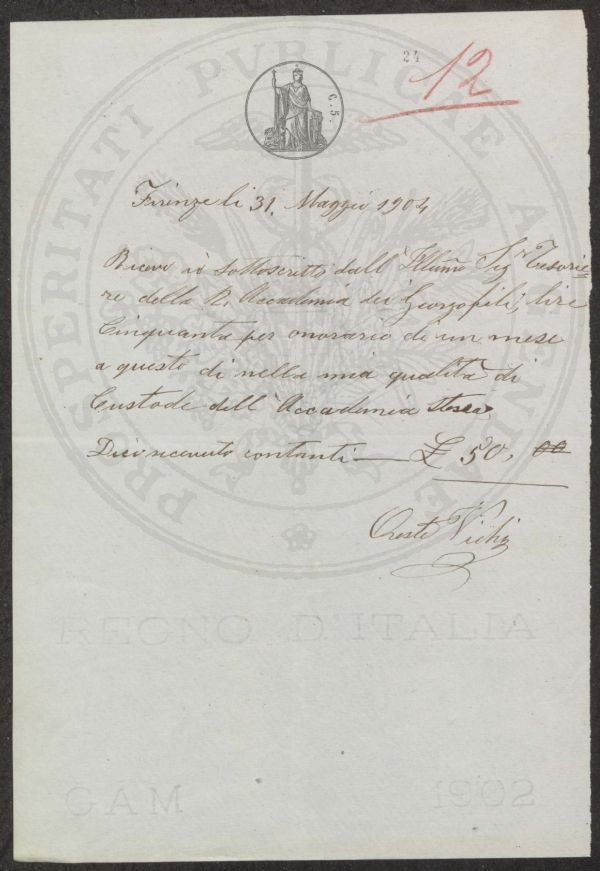 24
12
C. 5.
PROSPERITATI PUBLICAE AUGENDAE
Firenze li 31. Maggio 1904
Ricevo io sottoscritto dall' Illmo Sigr Tesorie-
re della R. Accademia dei Georgofili, lire
Cinquanta per onorario di un mese
a questo dì nella mia qualità di
Custode dell' Accademia stessa,
Dico ricevuto contanti — £ 50, 00
Oreste Vichi
REGNO D'ITALIA
GAM 1902